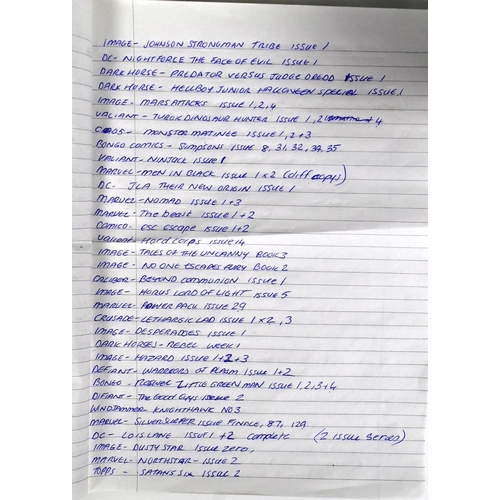 IMAGE - JOHNSON STRONGMAN TRIBE ISSUE 1
DC - NIGHTFORCE THE FACE OF EVIL ISSUE 1
DARK HORSE - PREDATOR VERSUS JUDGE DREDD ISSUE 1
DARK HORSE - HELLBOY JUNIOR HALLOWEEN SPECIAL ISSUE 1
IMAGE - MARS ATTACKS ISSUE 1, 2, 4
VALIANT - TUROK DINOSAUR HUNTER ISSUE 1, 2 4
CAOS - MONSTER MATINEE ISSUE 1, 2 + 3
BONGO COMICS - SIMPSONS ISSUE 8, 31, 32, 34, 35
VALIANT - NINJACK ISSUE 1
MARVEL - MEN IN BLACK ISSUE 1 x 2 (diff copys)
DC - JLA THEIR NEW ORIGIN ISSUE 1
MARVEL - NOMAD ISSUE 1 + 3
MARVEL - The beast ISSUE 1 + 2
COMICO - esc escape ISSUE 1 + 2
VALIANT - Hard corps ISSUE 14
IMAGE - TALES OF THE UNCANNY BOOK 3
IMAGE - NO ONE ESCAPES FURY BOOK 2
CALIBER - BEYOND COMMUNION ISSUE 1
IMAGE - HORUS LORD OF LIGHT ISSUE 5
MARVEL - POWER PACK ISSUE 29
CRUSADE - LETHARGIC LAD ISSUE 1 x 2, 3
IMAGE - DESPERADOES ISSUE 1
DARK HORSES - REBEL WEEK 1
IMAGE - HAZARD ISSUE 1 + 2 + 3
DEFIANT - WARRIORS OF PLASM ISSUE 1 + 2
BONGO - ROSWEL LITTLE GREEN MAN ISSUE 1, 2, 3 + 4
DIFIANT - The GOOD GUYS ISSUE 2
WINDJAMMER - KNIGHTHAWK NO 3
MARVEL - SILVER SURFER ISSUE FINALE, 87, 129
DC - LOIS LANE ISSUE 1 + 2 COMPLETE (2 ISSUE SERIES)
IMAGE - DUSTY STAR ISSUE ZERO,
MARVEL - NORTHSTAR - ISSUE 2
TOPPS - SATANS SIX ISSUE 2